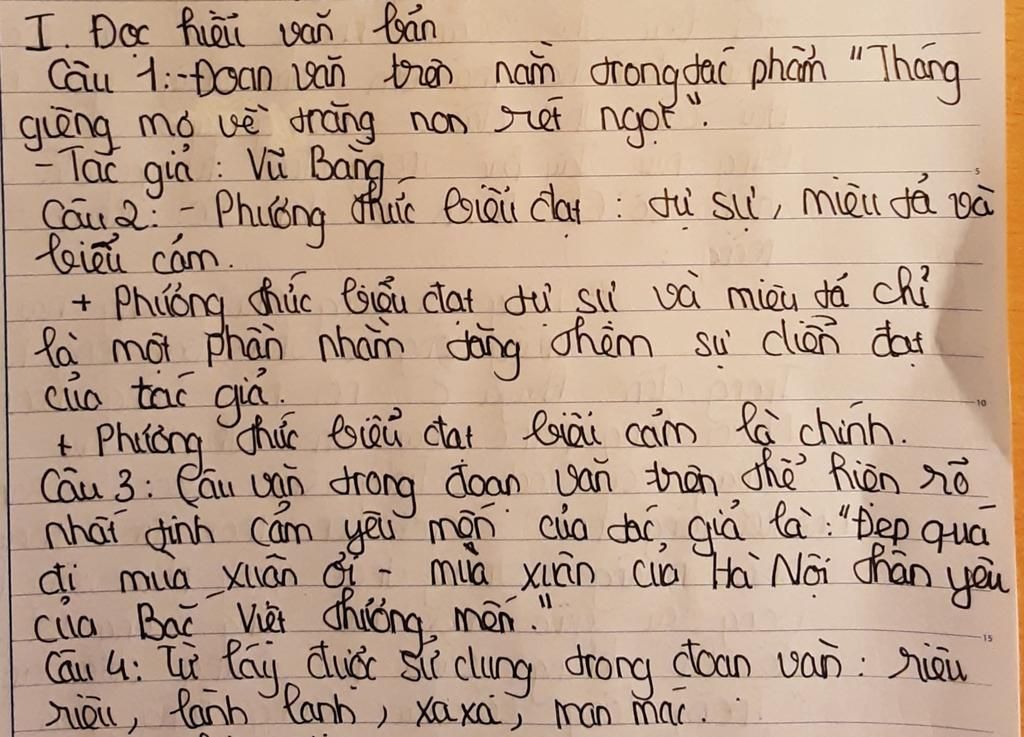 I. Đọc hiểu văn bản
Câu 1: - Đoạn văn trên nằm trong tác phẩm "Tháng
giêng mơ về trăng non rét ngọt".
- Tác giả : Vũ Bằng
Câu 2: - Phương thức biểu đạt : tự sự, miêu tả và
biểu cảm.
+ Phương thức biểu đạt tự sự và miêu tả chỉ
là một phần nhằm tăng thêm sự diễn đạt
của tác giả.
+ Phương thức biểu đạt biểu cảm là chính.
Câu 3: Câu văn trong đoạn văn trên thể hiện rõ
nhất tình cảm yêu mến của tác giả là: "Đẹp quá
đi mùa xuân ơi - mùa xuân của Hà Nội thân yêu
của Bắc Việt thương mến."
Câu 4: Từ láy được sử dụng trong đoạn văn: riêu
riêu, lành lạnh, xa xa, man mác.
5
10
15